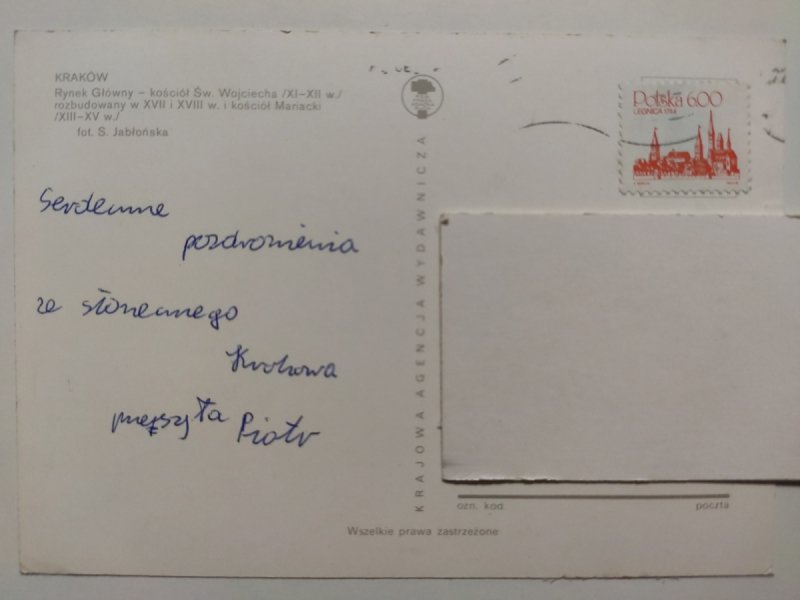 KRAKÓW
Rynek Główny – kościół Św. Wojciecha /XI–XII w./
rozbudowany w XVII i XVIII w. i kościół Mariacki
/XIII–XV w./
fot. S. Jabłońska
Serdeczne
pozdrowienia
ze słonecznego
Krakowa
przesyła Piotr
KRAJOWA AGENCJA WYDAWNICZA
Polska 6.00
LEGNICA 1744
ozn. kod
poczta
Wszelkie prawa zastrzeżone